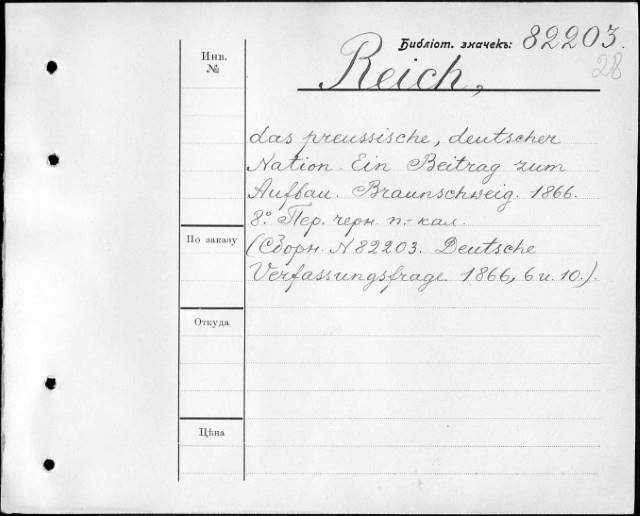 Библіот. значекъ: 82203.
28
Инв.
№
Reich,
das preussische, deutscher
Nation. Ein Beitrag zum
Aufbau. Braunschweig. 1866.
8.° Пер. черн. п.-кал.
По заказу
(Сборн. N 82203. Deutsche
Verfassungsfrage. 1866, 6 u. 10.).
Откуда
Цѣна